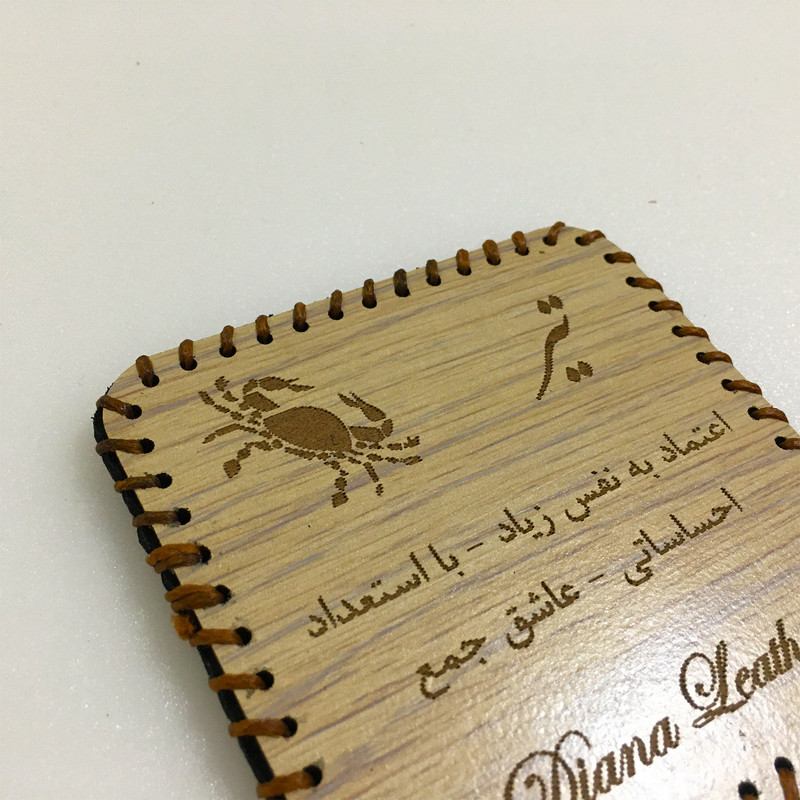 تیر
اعتماد به نفس زیاد - با استعداد
احساساتی - عاشق جمع
Diana Leath